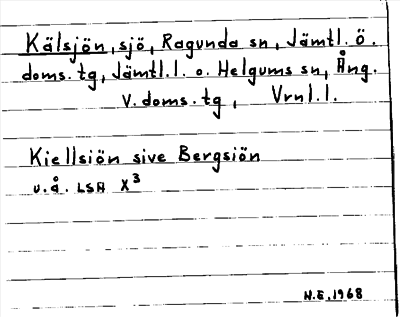 Kälsjön, sjö, Ragunda sn, Jämtl. ö.
doms. tg, Jämtl. l. o. Helgums sn, Ång.
v. doms. tg, Vrnl. l.
Kiellsiön sive Bergsiön
u.å. LSA X³
N.E. 1968